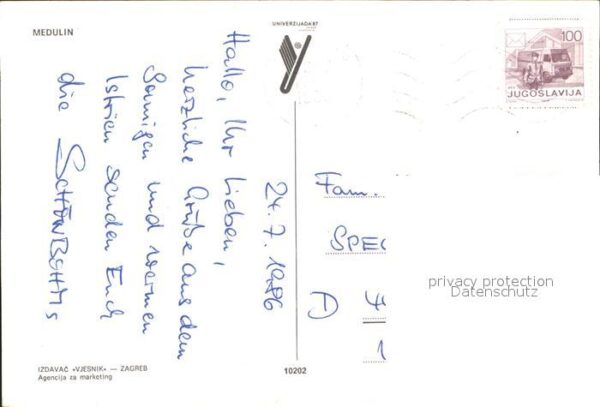 MEDULIN
UNIVERZIJADA'87
100
JUGOSLAVIJA
24.7.1986
Hallo, Ihr Lieben,
herzliche Grüße aus dem
Sonnigen und warmen
Istrien senden Euch
die SCHÖNBOHMs
Fam.
SPEC
D
1
privacy protection
Datenschutz
IZDAVAČ »VJESNIK« — ZAGREB
Agencija za marketing
10202